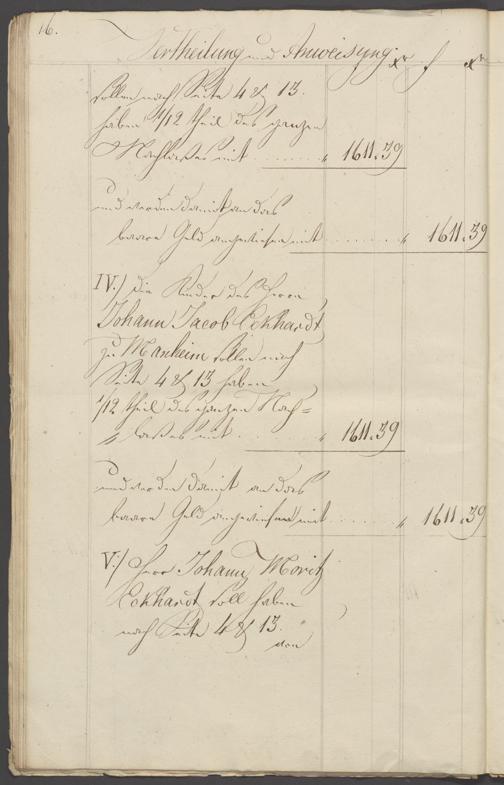 16.
Vertheilung und Anweisung. xr f xr
sollen nach Seite 4 & 13.
haben 1/12 theil des ganzen
Nachlaßes mit . . . . . . . " 1611.39
und werden damit an das
baare Geld angewiesen mit . . . . . . . . " 1611.39
IV./ die Kinder des Herrn
Johann Jacob Eckhardt
zu Manheim sollen nach
Seite 4 & 13 haben
1/12 theil des ganzen Nach=
" laßes mit . . . . . . . " 1611.39
und werden damit an das
baare Geld angewiesen mit . . . . . " 1611.39
V./ Herr Johann Moritz
Eckhardt soll haben
nach Seite 4 & 13.
von